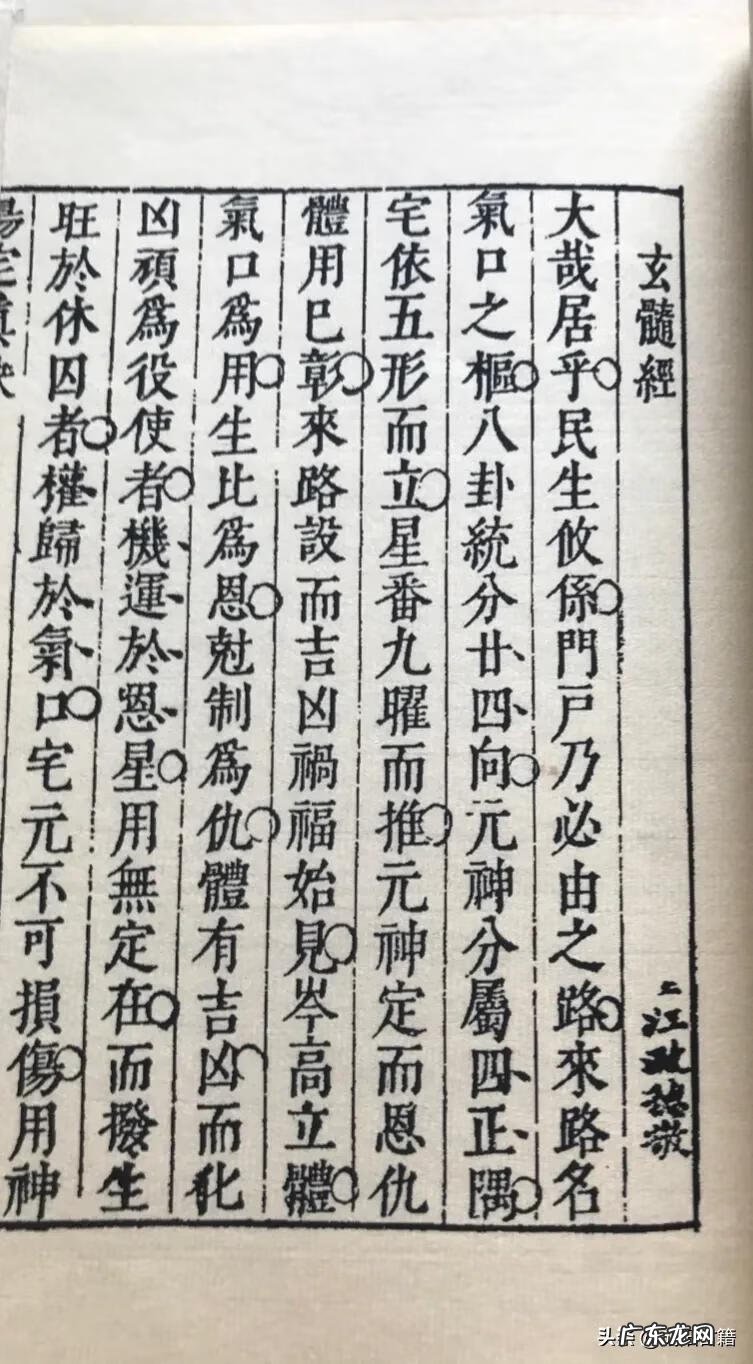 玄髓經
大哉居乎民生攸係門戶乃必由之路來路名
氣口之樞八卦統分廿四向元神分屬四正隅
宅依五形而立星番九曜而推元神定而恩仇
體用已彰來路設而吉凶禍福始見岑高立體
氣口為用生比為恩尅制為仇體有吉凶而化
凶頑為役使者機運於恩星用無定在而撥生
旺於休囚者權歸於氣口宅元不可損傷用神
广东龙网